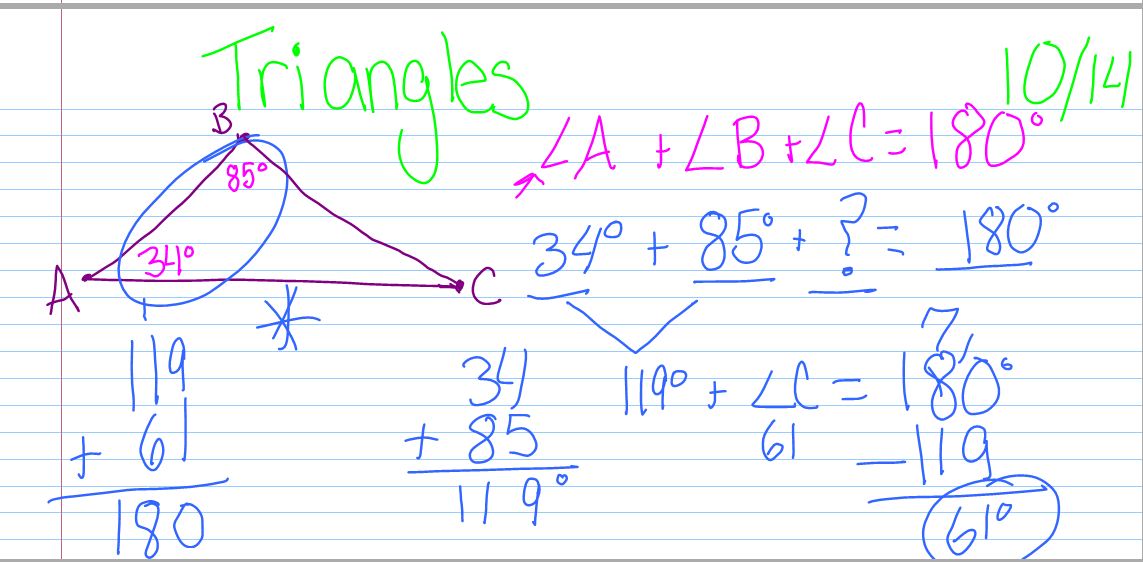 Triangles
10/14
B
85°
34°
A
C
∠A + ∠B + ∠C = 180°
34° + 85° + ? = 180°
119° + ∠C = 180°
61
7 1
- 119
61°
34
+ 85
119°
119
+ 61
180